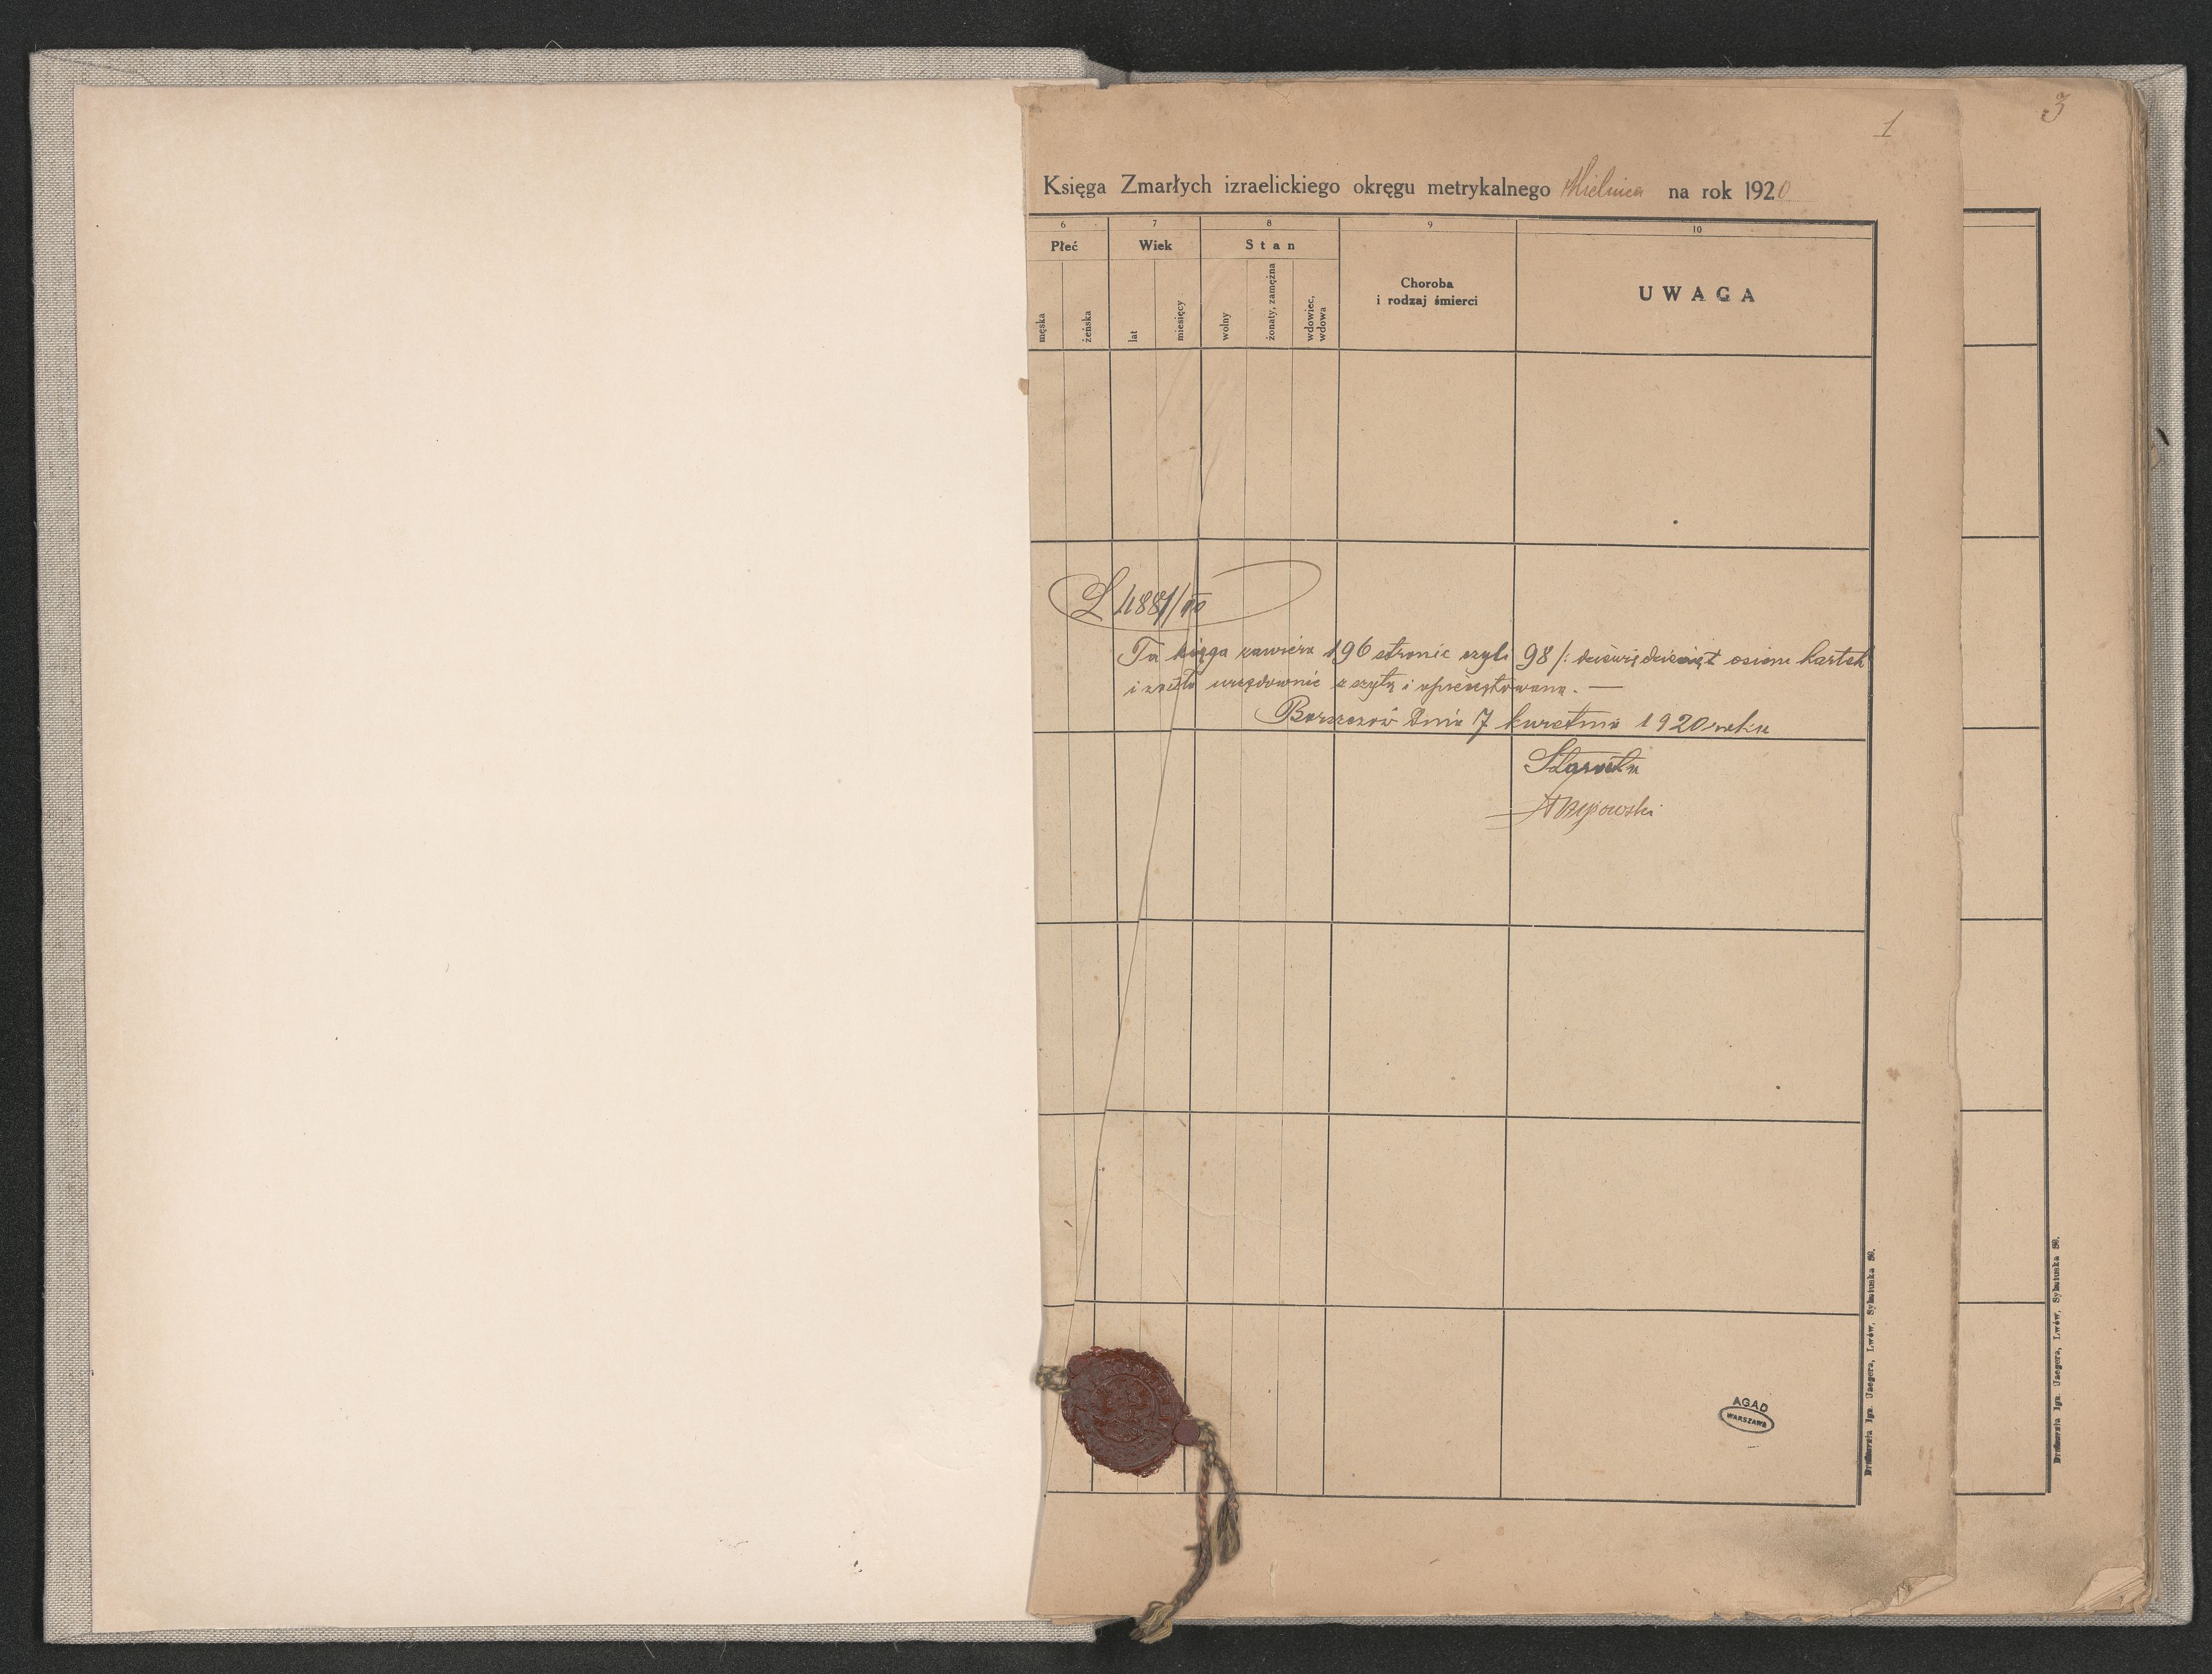 1
3
Księga Zmarłych izraelickiego okręgu metrykalnego Mielnica na rok 1920
6 7 8 9 10
Płeć Wiek Stan Choroba i rodzaj śmierci UWAGA
męska żeńska lat miesięcy wolny żonaty, zamężna wdowiec, wdowa
Ta księga zawiera 196 stronic czyli 98 /: dziewięćdziesiąt osiem kartek
i została urzędownie zszytą i opieczętowana. —
Borszczów dnia 7 kwietnia 1920 roku
Starosta
AGAD
WARSZAWA
Drukarnia Ign. Jaegera, Lwów, Sykstuska 50.
Drukarnia Ign. Jaegera, Lwów, Sykstuska 50.